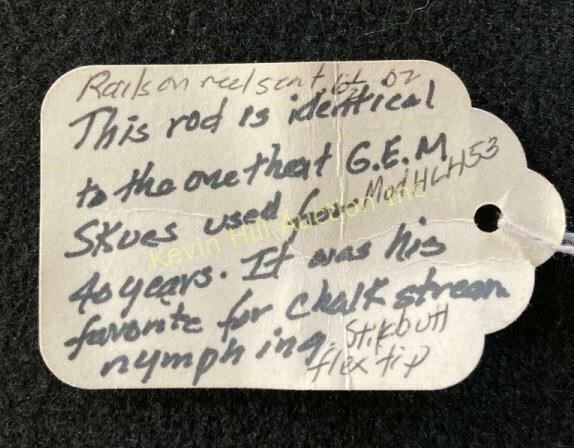 Rails on reel
This rod is identical
to the one that G.E.M
Skues used for Mod HLH53
40 years. It was his
favorite for chalk stream
nymphing. Stif butt
flex tip
Kevin Hill Auction Inc